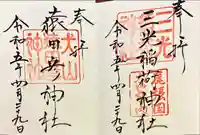 奉拝
三光稲荷神社
令和五年四月二九日
奉拝
猿田彦神社
令和五年四月二九日
犬山